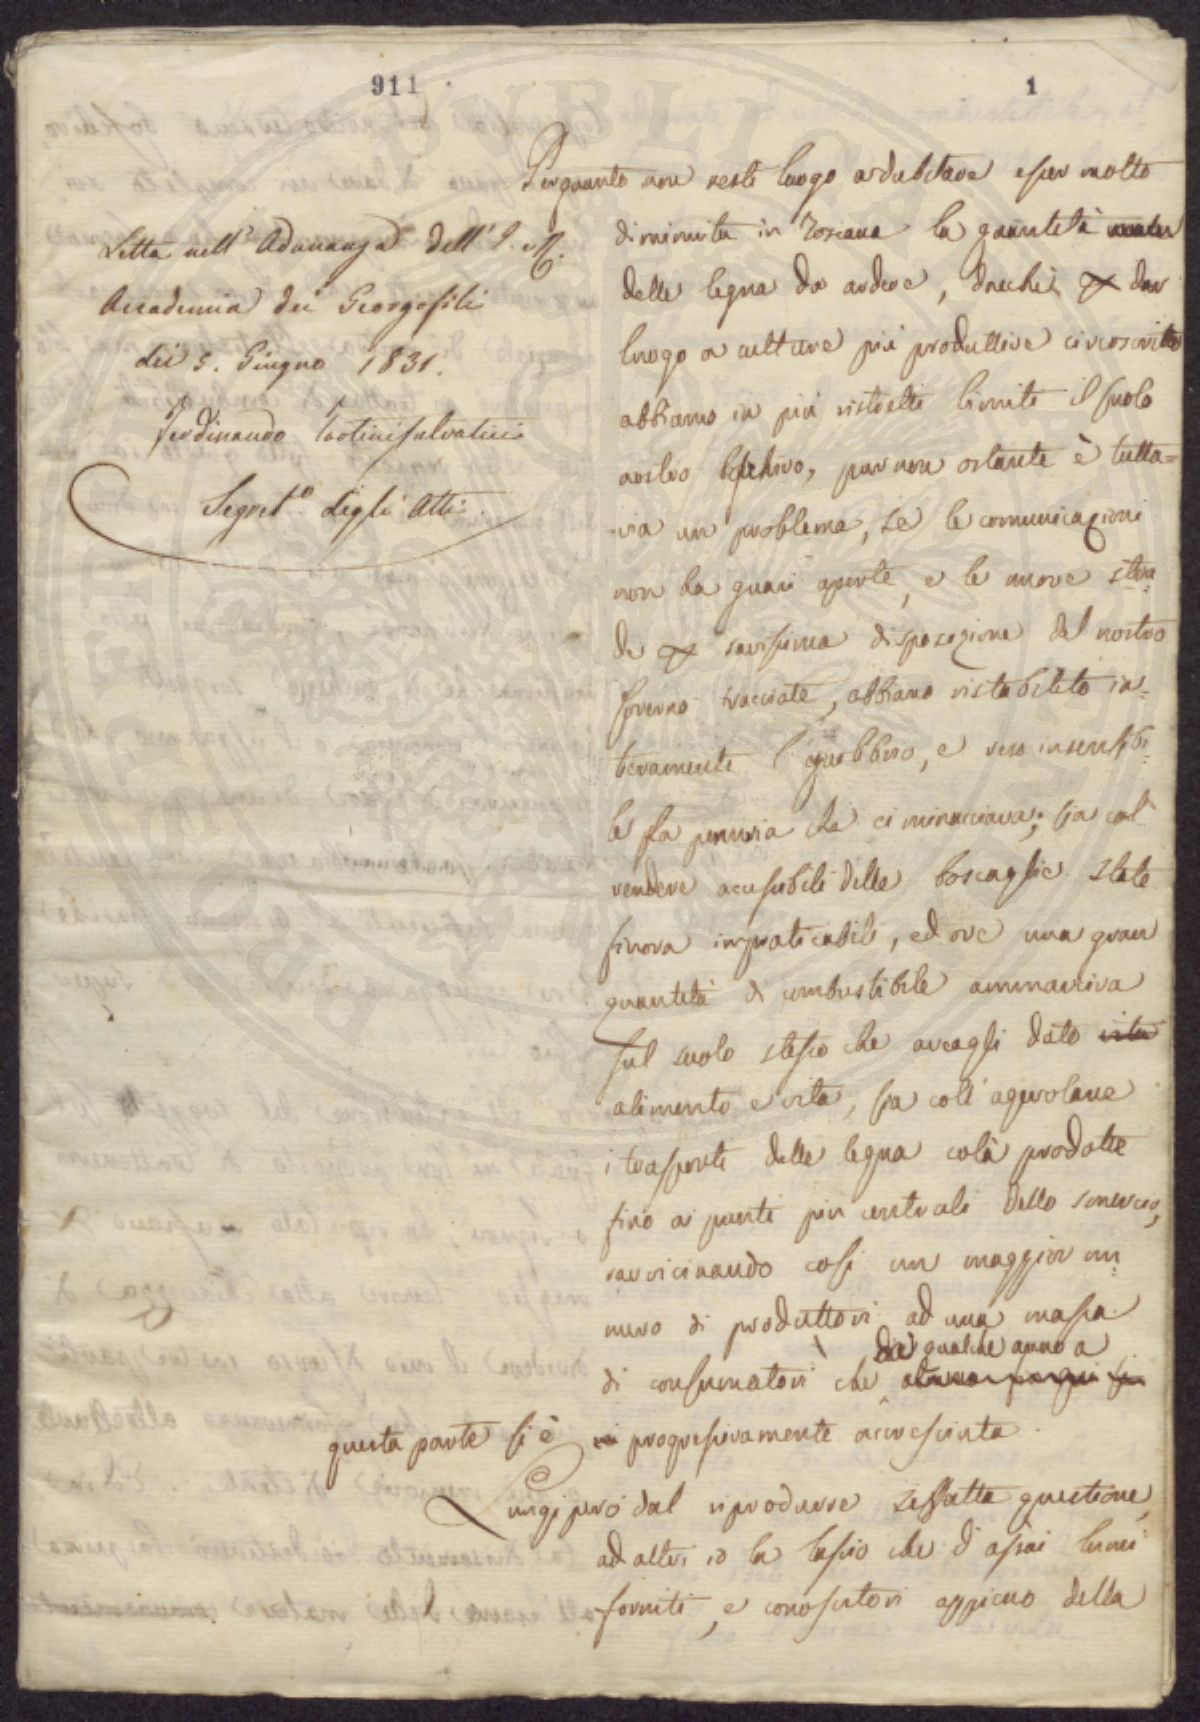 911
1
Letta nell' Adunanza dell' I. e R.
Accademia dei Georgofili
dei 5. Giugno 1831.
Ferdinando Tartini Salvatici
Segret.o degli Atti.
Per quanto non resti luogo a dubitare esser molto
diminuita in Toscana la quantità
delle legna da ardere, dacchè p dar
luogo a culture più produttive circoscritto
abbiamo in più ristretti limiti il suolo
nostro boschivo, pur non ostante è tutta=
via un problema, se le comunicazioni
non ha guari aperte, e le nuove stra=
de p savissima disposizione del nostro
Governo tracciate, abbiano ristabilito in=
teramente l' equilibrio, e reso insensibi=
le la penuria che ci minacciava; sia col
rendere accessibili delle boscaglie state
finora impraticabili, ed ove una gran
quantità di combustibile ammarciva
sul suolo stesso che aveagli dato vita
alimento e vita, sia coll' agevolare
i trasporti delle legna colà prodotte
fino ai punti più centrali dello smercio,
ravvicinando così un maggior nu=
mero di produttori ad una massa
di consumatori che da qualche anno a
questa parte si è progressivamente accresciuta.
Lungi però dal riprodurre siffatta questione
ad altri io la lascio che d' assai lumi
forniti, e conoscitori appieno della